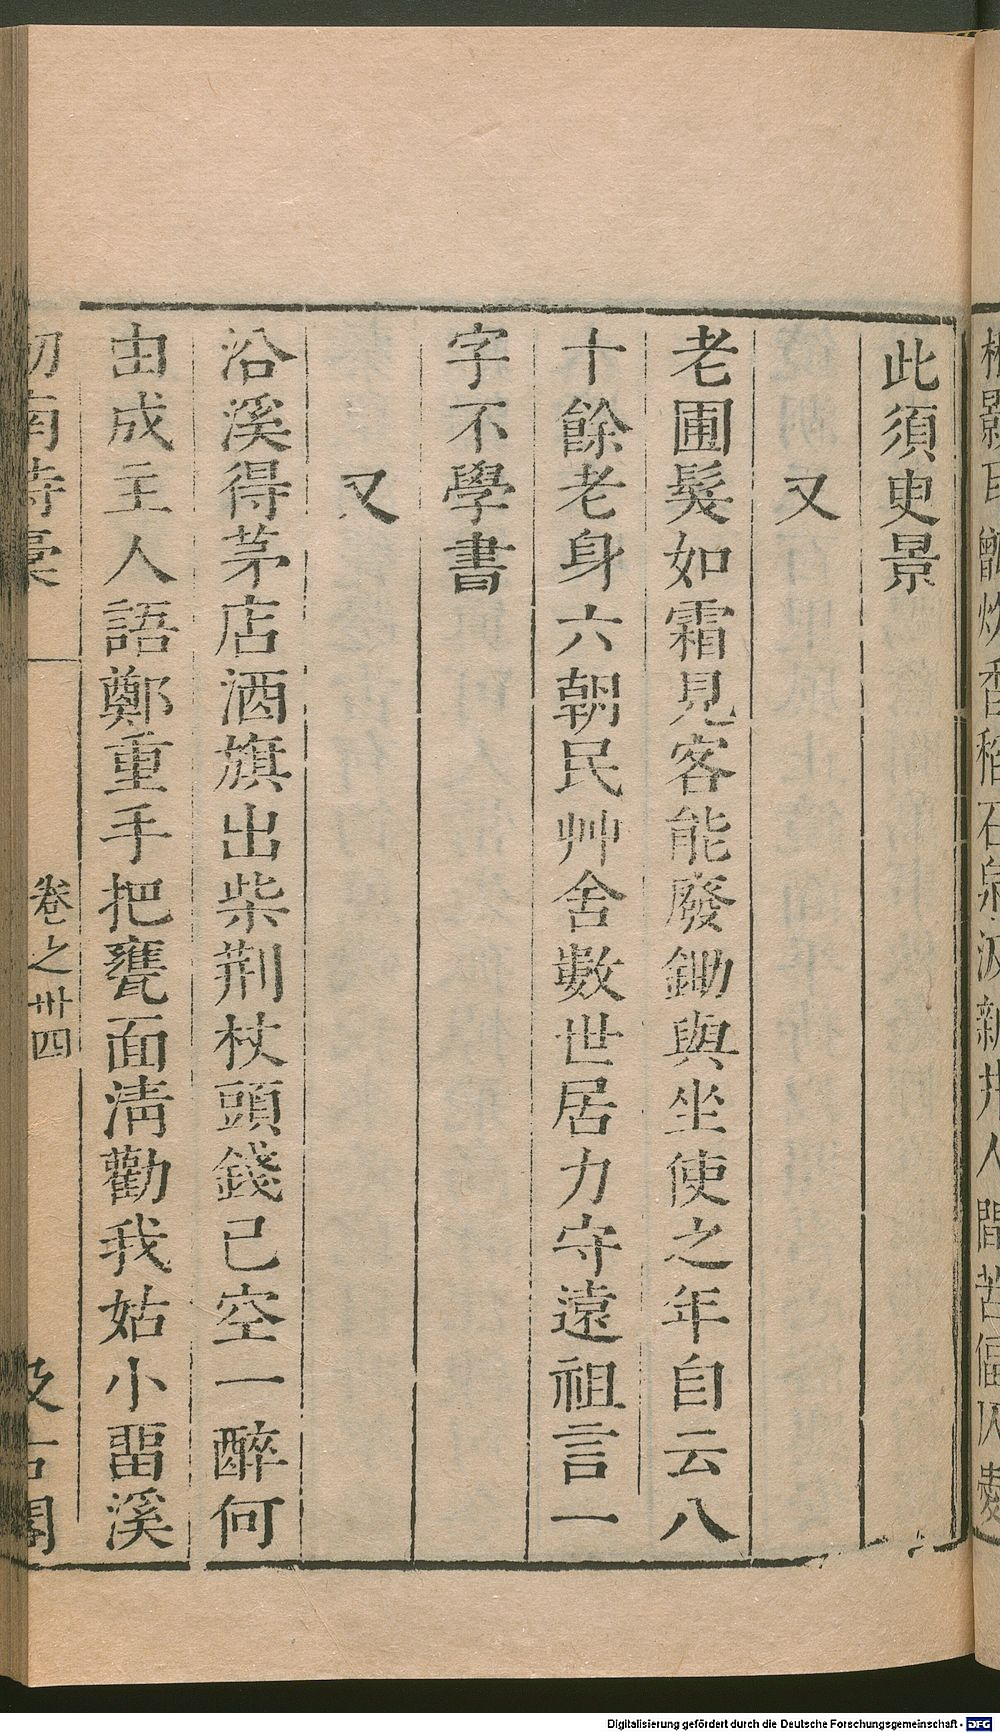 此須臾景
又
老圃髮如霜見客能廢鋤與坐使之年自云八
十餘老身六朝民艸舍數世居力守遠祖言一
字不學書
又
沿溪得茅店酒旗出柴荆杖頭錢已空一醉何
由成主人語鄭重手把甕面淸勸我姑小畱溪
卷之卅四
Digitalisierung gefördert durch die Deutsche Forschungsgemeinschaft - DFG